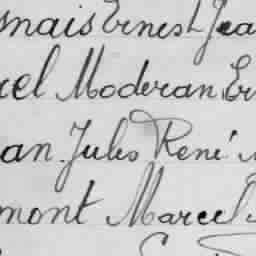 snais Ernest Jea
cel Moderan Er
an Jules René
mont Marcel